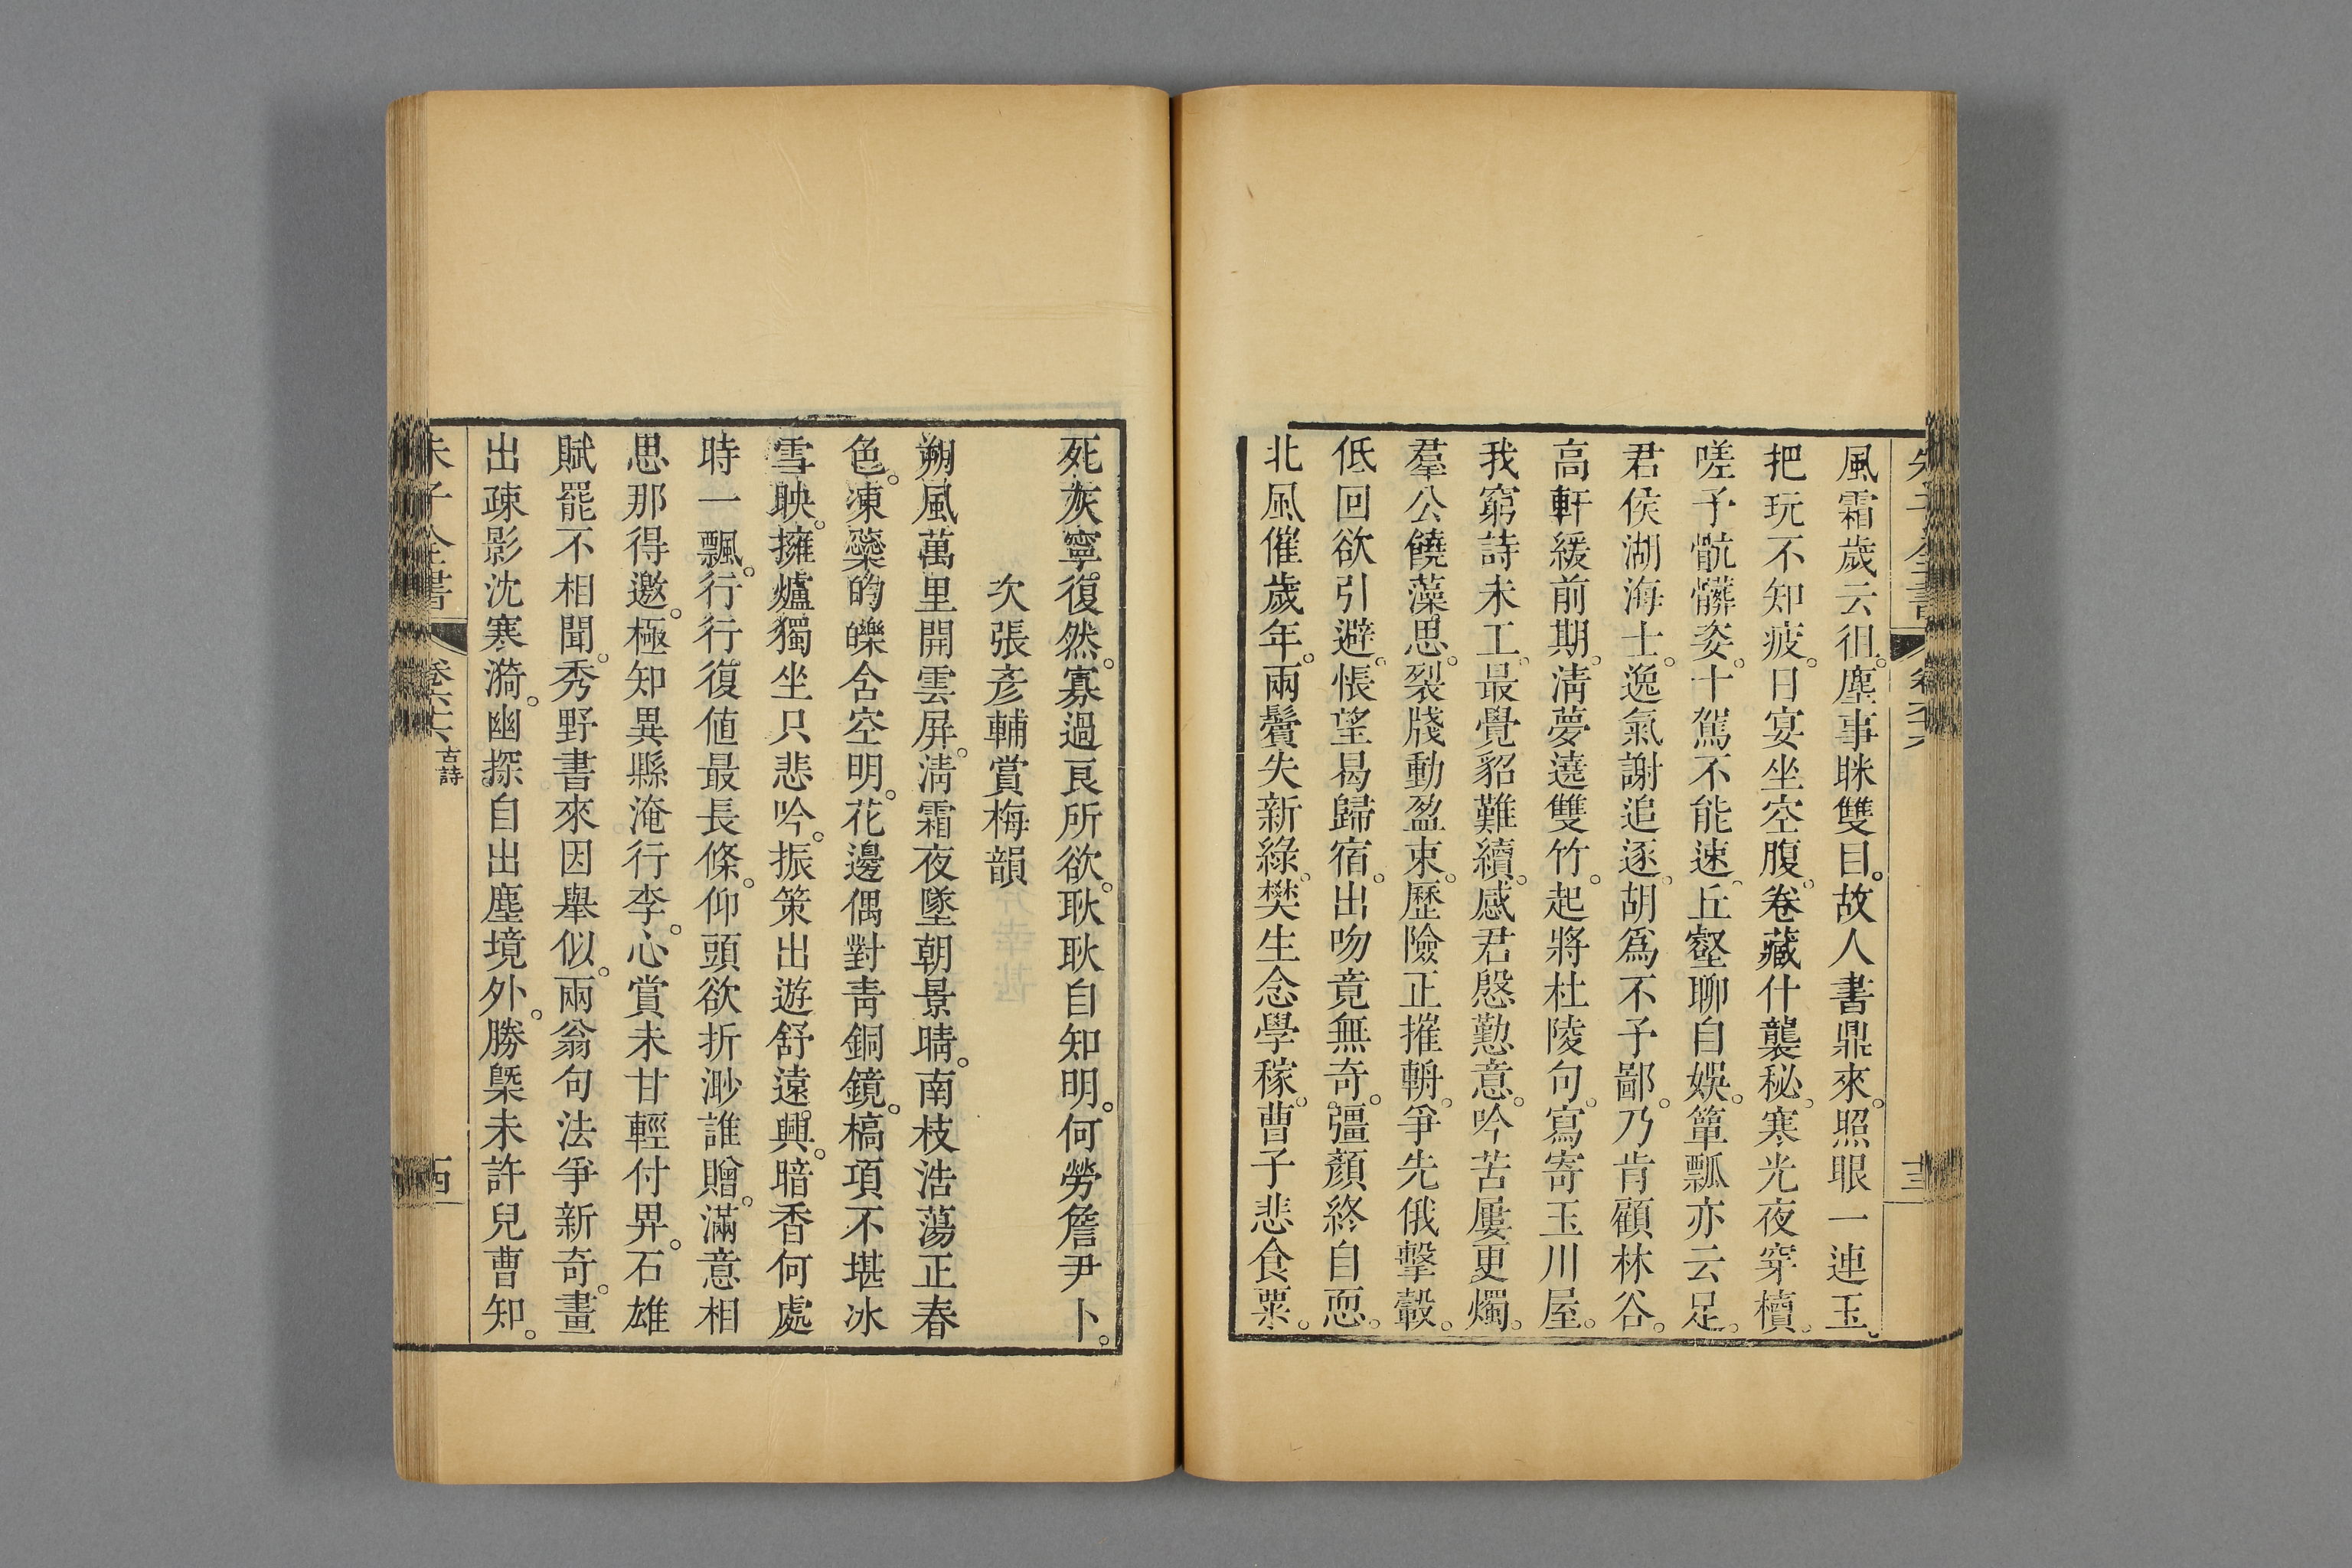 風霜歲云徂。塵事眯雙目。故人書鼎來。照眼一連玉。
把玩不知疲。日宴坐空腹。卷藏什襲秘。寒光夜穿櫝。
嗟予骯髒姿。十駕不能速。丘壑聊自娛。簞瓢亦云足。
君侯湖海士。逸氣謝追逐。胡爲不予鄙。乃肯顧林谷。
高軒緩前期。淸夢遶雙竹。起將杜陵句。寫寄玉川屋。
我窮詩未工。最覺貂難續。感君慇懃意。吟苦屢更燭。
羣公饒藻思。裂牋動盈束。歷險正摧輈。爭先俄擊轂。
低回欲引避。悵望曷歸宿。出吻竟無奇。彊顏終自恧。
北風催歲年。兩鬢失新綠。樊生念學稼。曹子悲食粟。
死灰寧復然。寡過良所欲。耿耿自知明。何勞詹尹卜。
次張彥輔賞梅韻
朔風萬里開雲屏。淸霜夜墜朝景晴。南枝浩蕩正春
色。凍蘂的皪含空明。花邊偶對靑銅鏡。槁項不堪冰
雪映。擁爐獨坐只悲吟。振策出遊舒遠興。暗香何處
時一飄。行行復値最長條。仰頭欲折渺誰贈。滿意相
思那得邀。極知異縣淹行李。心賞未甘輕付畀。石雄
賦罷不相聞。秀野書來因舉似。兩翁句法爭新奇。畫
出疎影沈寒漪。幽探自出塵境外。勝槩未許兒曹知。
朱子全書 卷六十六 古詩